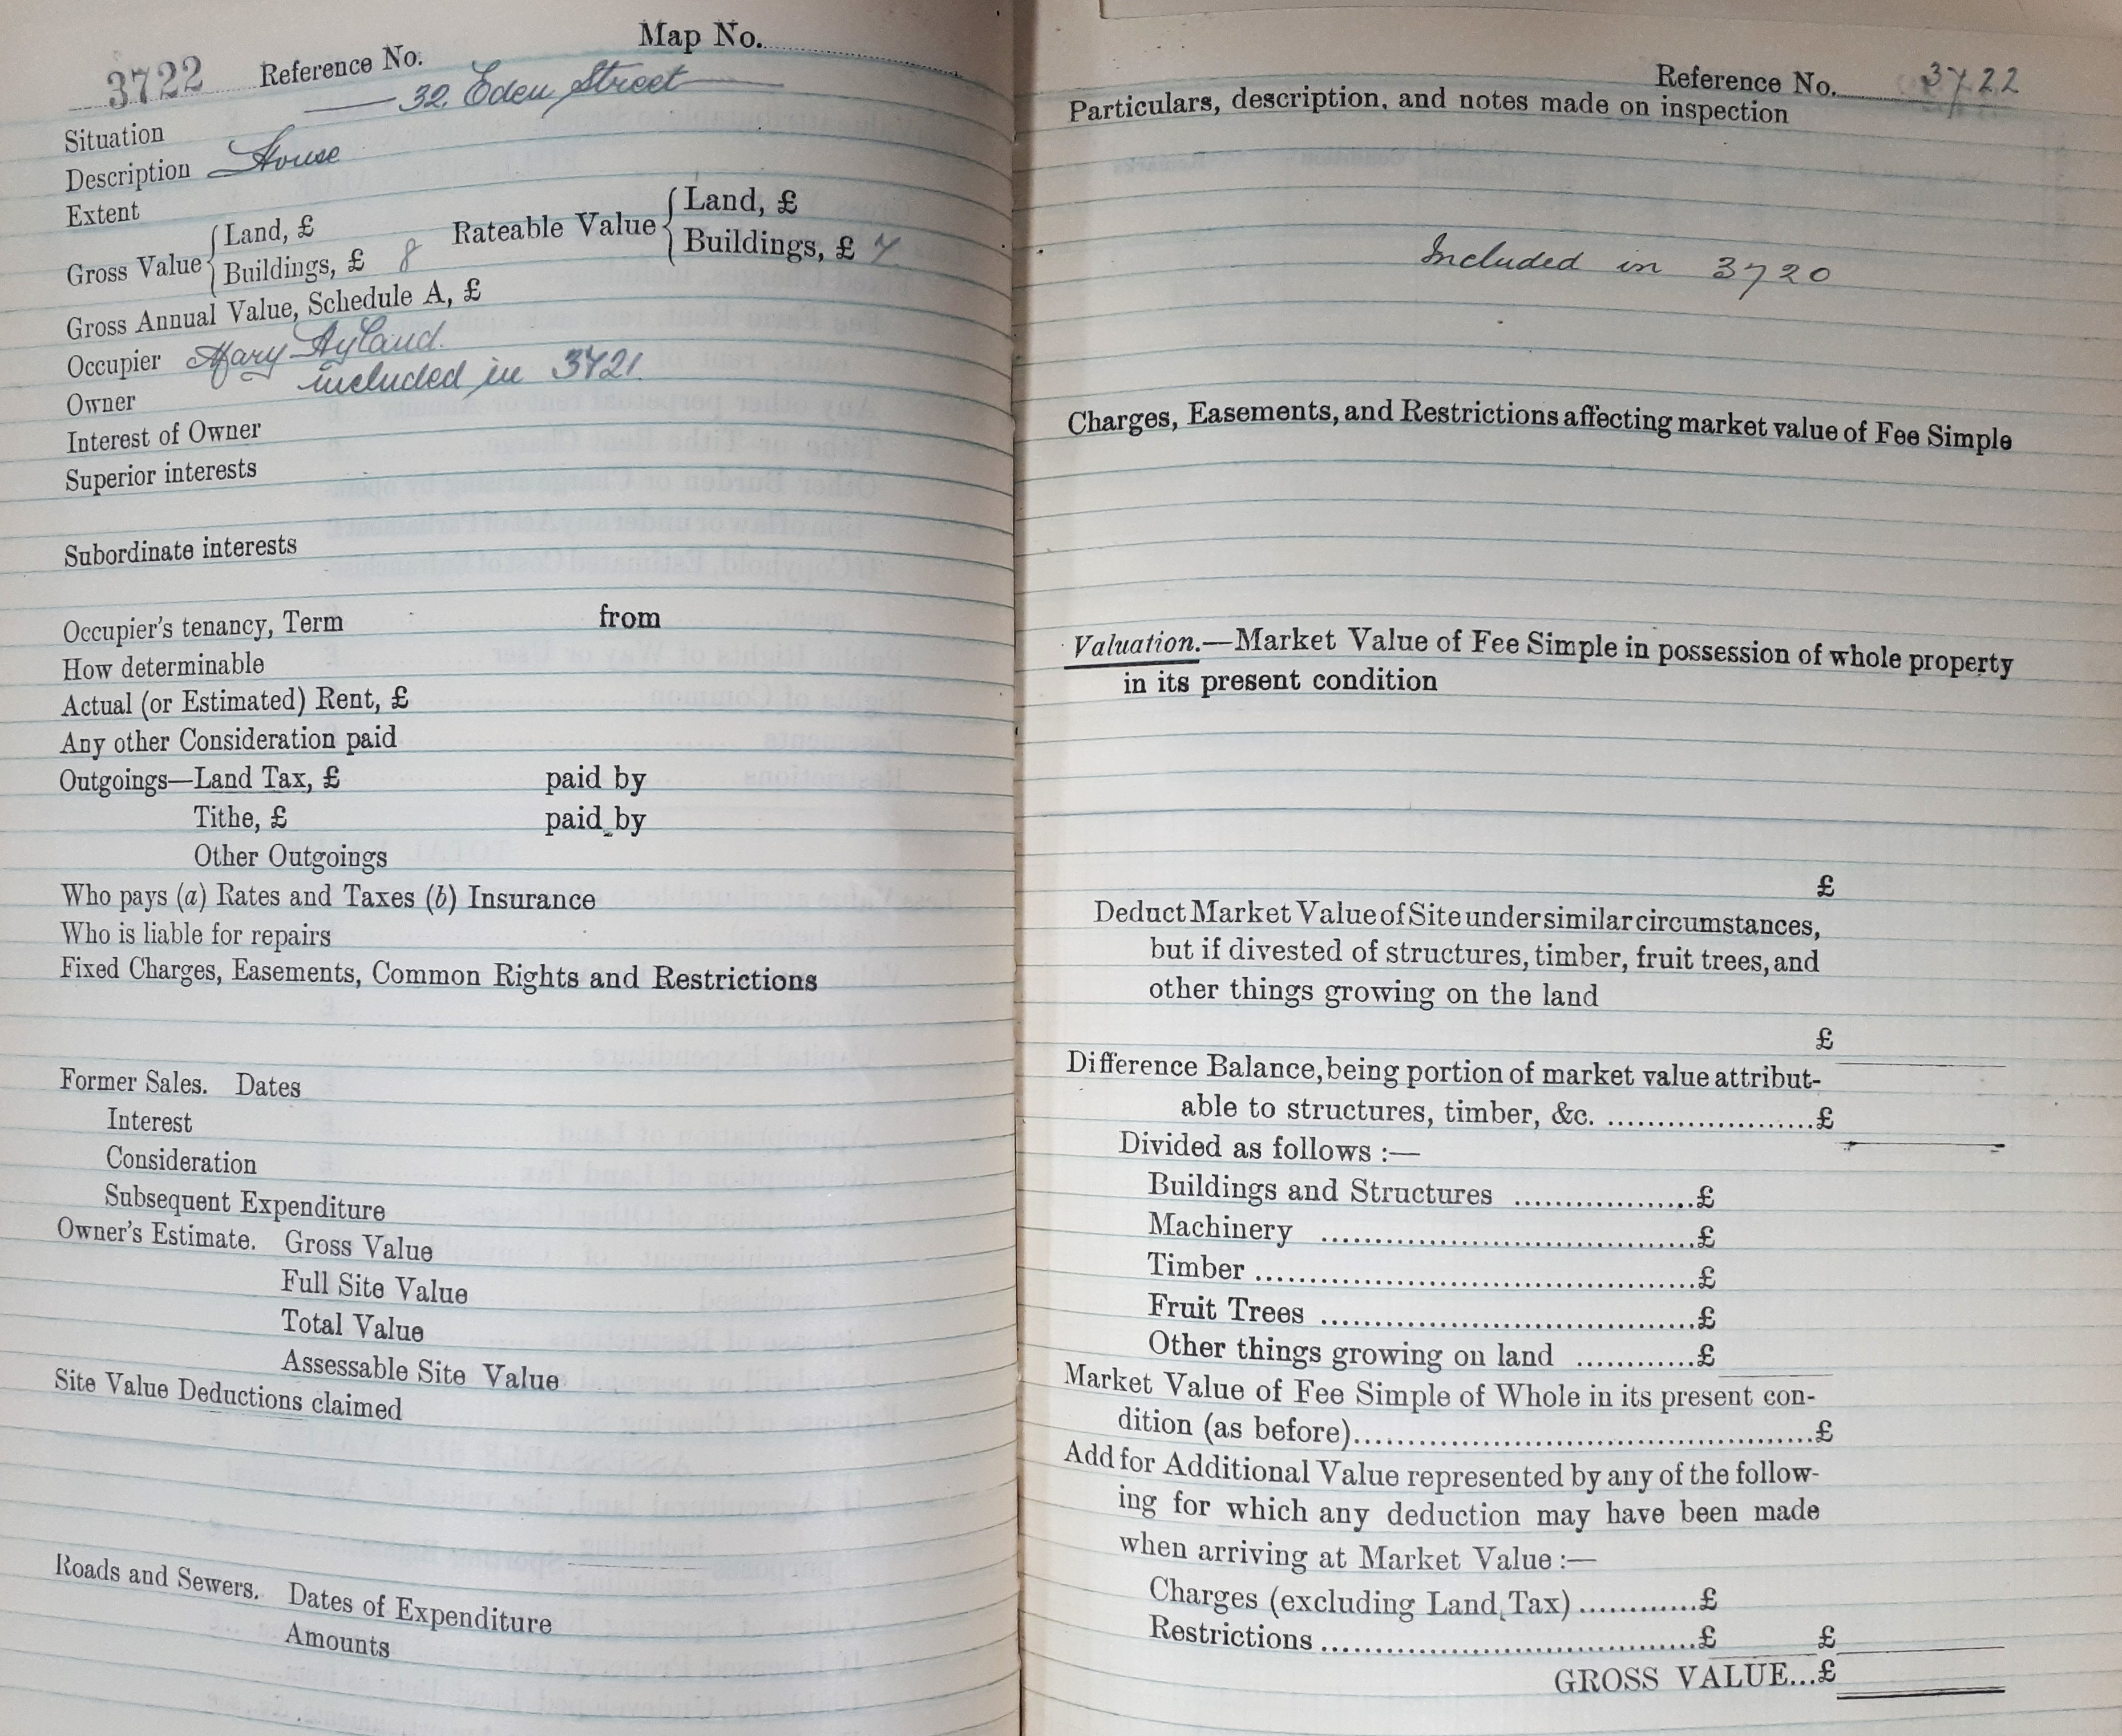 Map No.
3722 Reference No.
32, Eden Street
Situation
Description House
Extent
Gross Value { Land, £
Buildings, £ 8
Rateable Value { Land, £
Buildings, £ 7
Gross Annual Value, Schedule A, £
Occupier Mary Ayland.
included in 3721
Owner
Interest of Owner
Superior interests
Subordinate interests
Occupier's tenancy, Term from
How determinable
Actual (or Estimated) Rent, £
Any other Consideration paid
Outgoings—Land Tax, £ paid by
Tithe, £ paid by
Other Outgoings
Who pays (a) Rates and Taxes (b) Insurance
Who is liable for repairs
Fixed Charges, Easements, Common Rights and Restrictions
Former Sales. Dates
Interest
Consideration
Subsequent Expenditure
Owner's Estimate. Gross Value
Full Site Value
Total Value
Assessable Site Value
Site Value Deductions claimed
Roads and Sewers. Dates of Expenditure
Amounts
Reference No. 3722
Particulars, description, and notes made on inspection
Included in 3720
Charges, Easements, and Restrictions affecting market value of Fee Simple
Valuation.—Market Value of Fee Simple in possession of whole property
in its present condition
£
Deduct Market Value of Site under similar circumstances,
but if divested of structures, timber, fruit trees, and
other things growing on the land
£
Difference Balance, being portion of market value attribut-
able to structures, timber, &c. ......................£
Divided as follows :—
Buildings and Structures ..................£
Machinery .....................................£
Timber ............................................£
Fruit Trees .....................................£
Other things growing on land ............£
Market Value of Fee Simple of Whole in its present con-
dition (as before)..............................................£
Add for Additional Value represented by any of the follow-
ing for which any deduction may have been made
when arriving at Market Value :—
Charges (excluding Land Tax) ............£
Restrictions .....................................£ £
GROSS VALUE...£